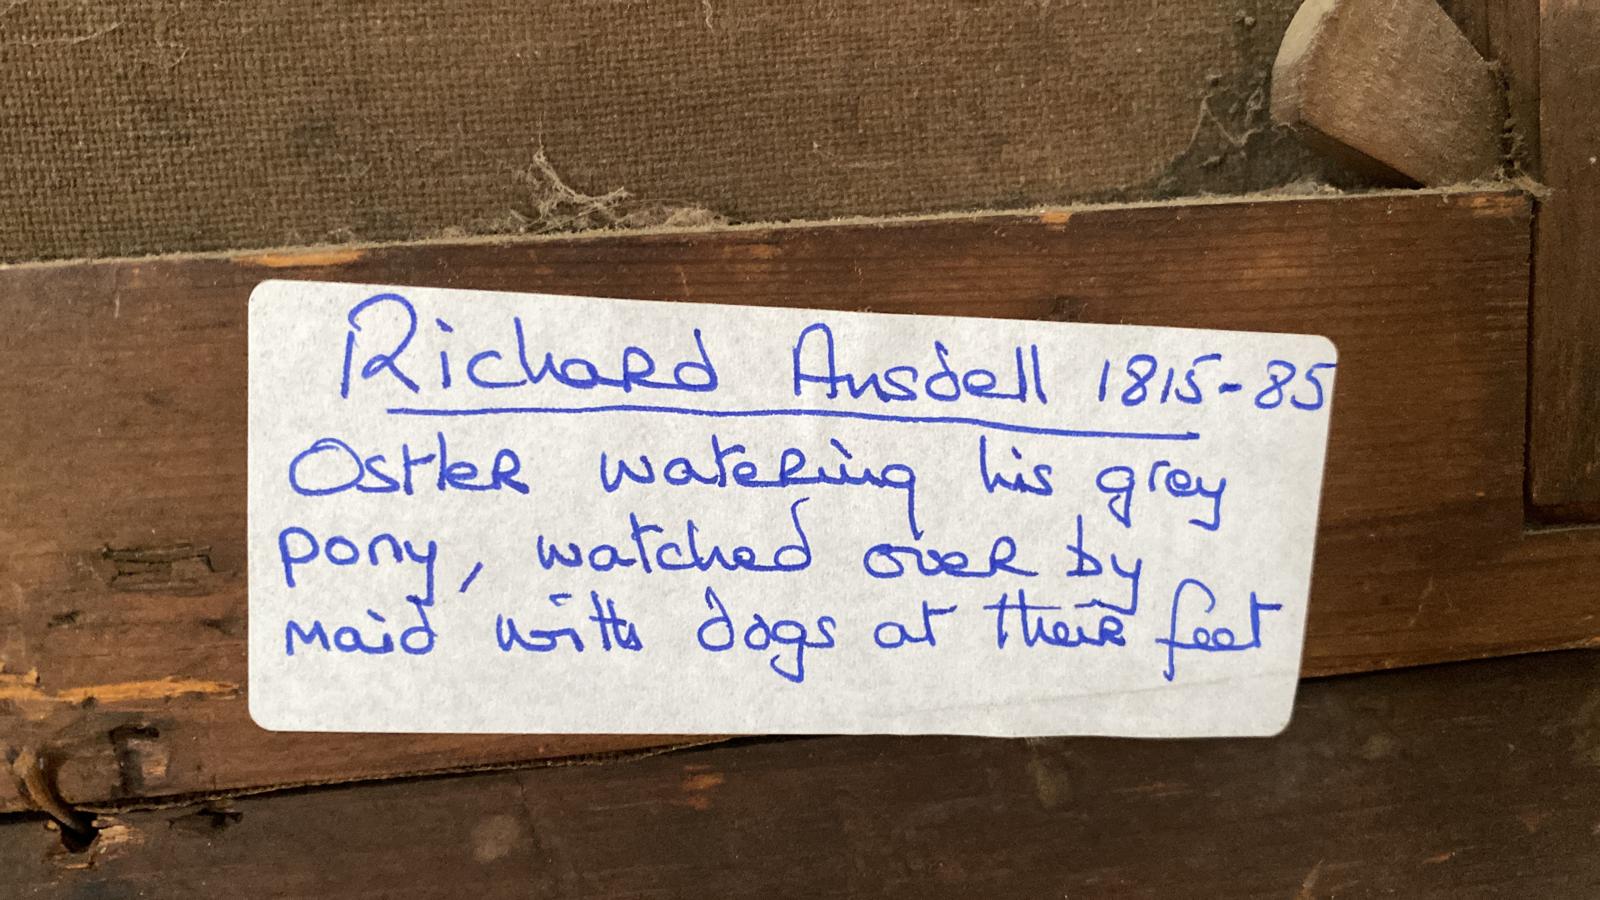 Richard Ansdell 1815-85
Ostler watering his grey
pony, watched over by
maid with dogs at their feet